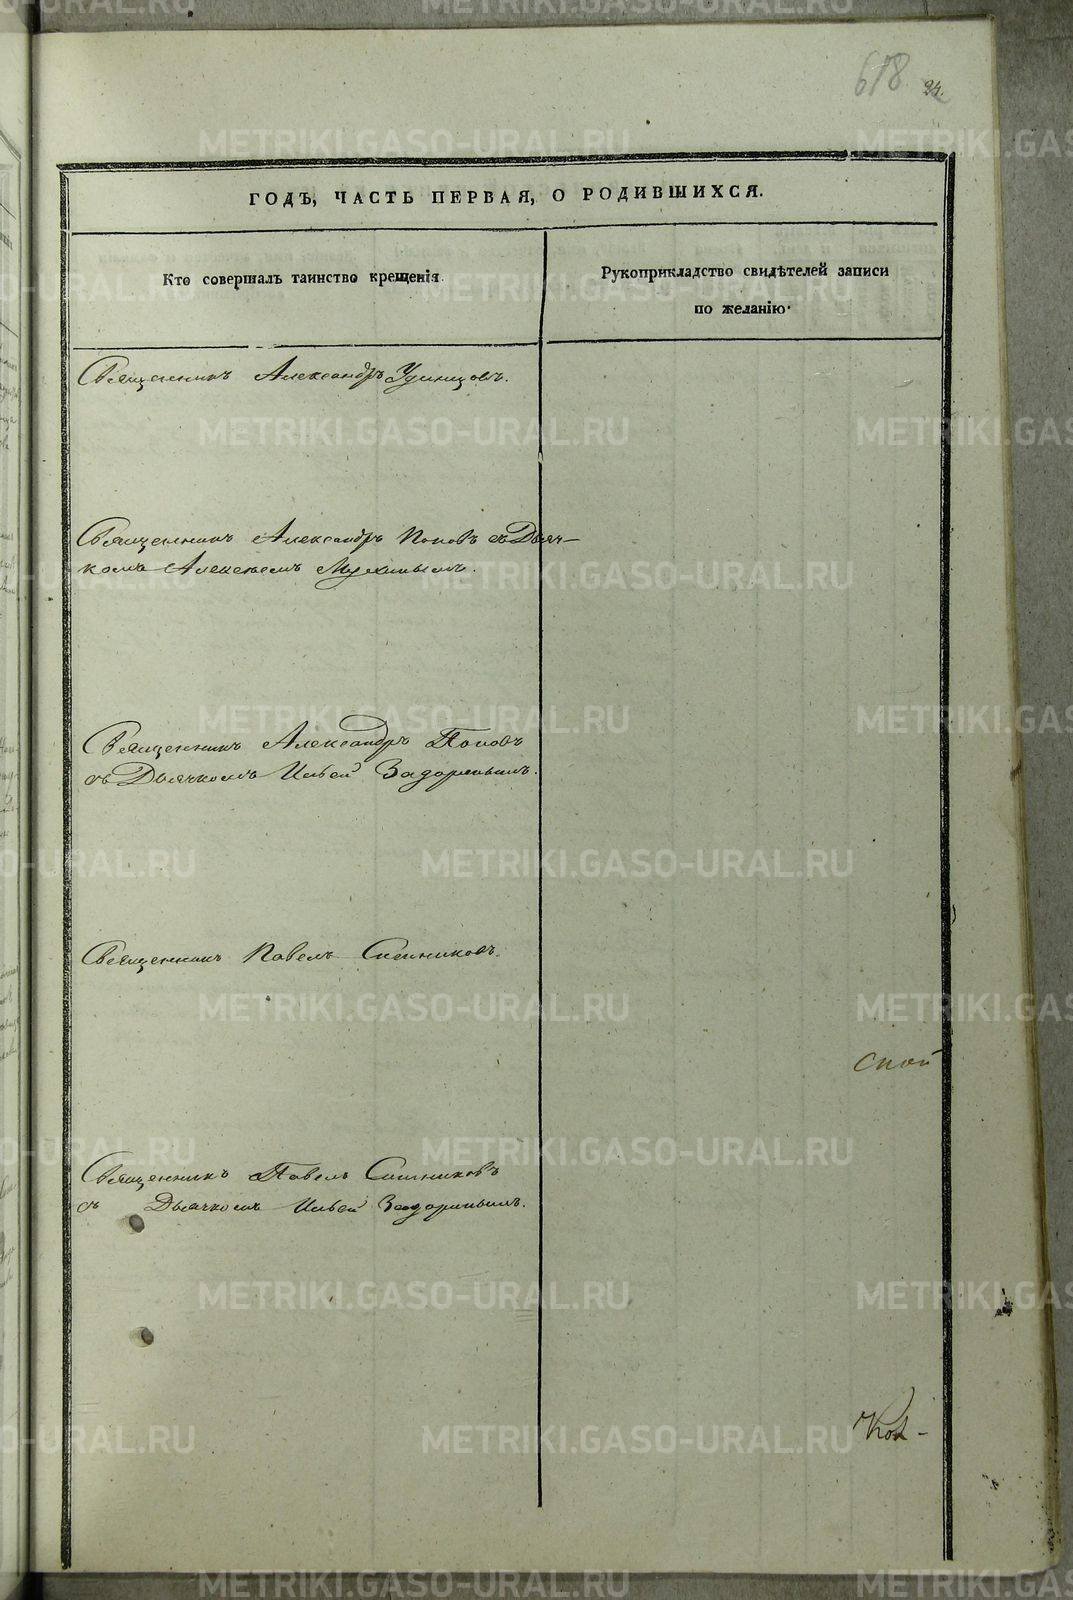 618
24.
ГОДЪ, ЧАСТЬ ПЕРВАЯ, О РОДИВШИХСЯ.
Кто совершалъ таинство крещенія.
Рукоприкладство свидѣтелей записи
по желанію.
Священникъ Александръ Удинцовъ.
Священникъ Александръ Поповъ съ Дьяч-
комъ Алексѣемъ Мухинымъ.
Священникъ Александръ Поповъ
съ Дьячкомъ Ильей Задоринымъ.
Священникъ Павелъ Ситниковъ.
ской
Священникъ Павелъ Ситниковъ
съ Дьячкомъ Ильей Задоринымъ.
METRIKI.GASO-URAL.RU